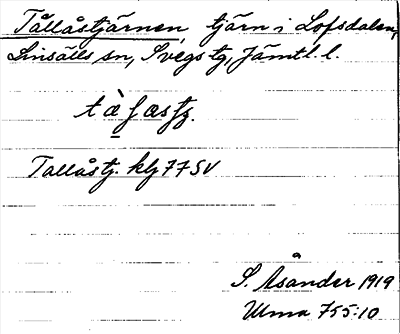 Tållåstjärnen, tjärn i Lofsdalen,
Linsälls sn, Svegs tg, Jämtl. l.
Tallåstj. kbl 77 SV
S. Åsander 1919
Ulma 755:10